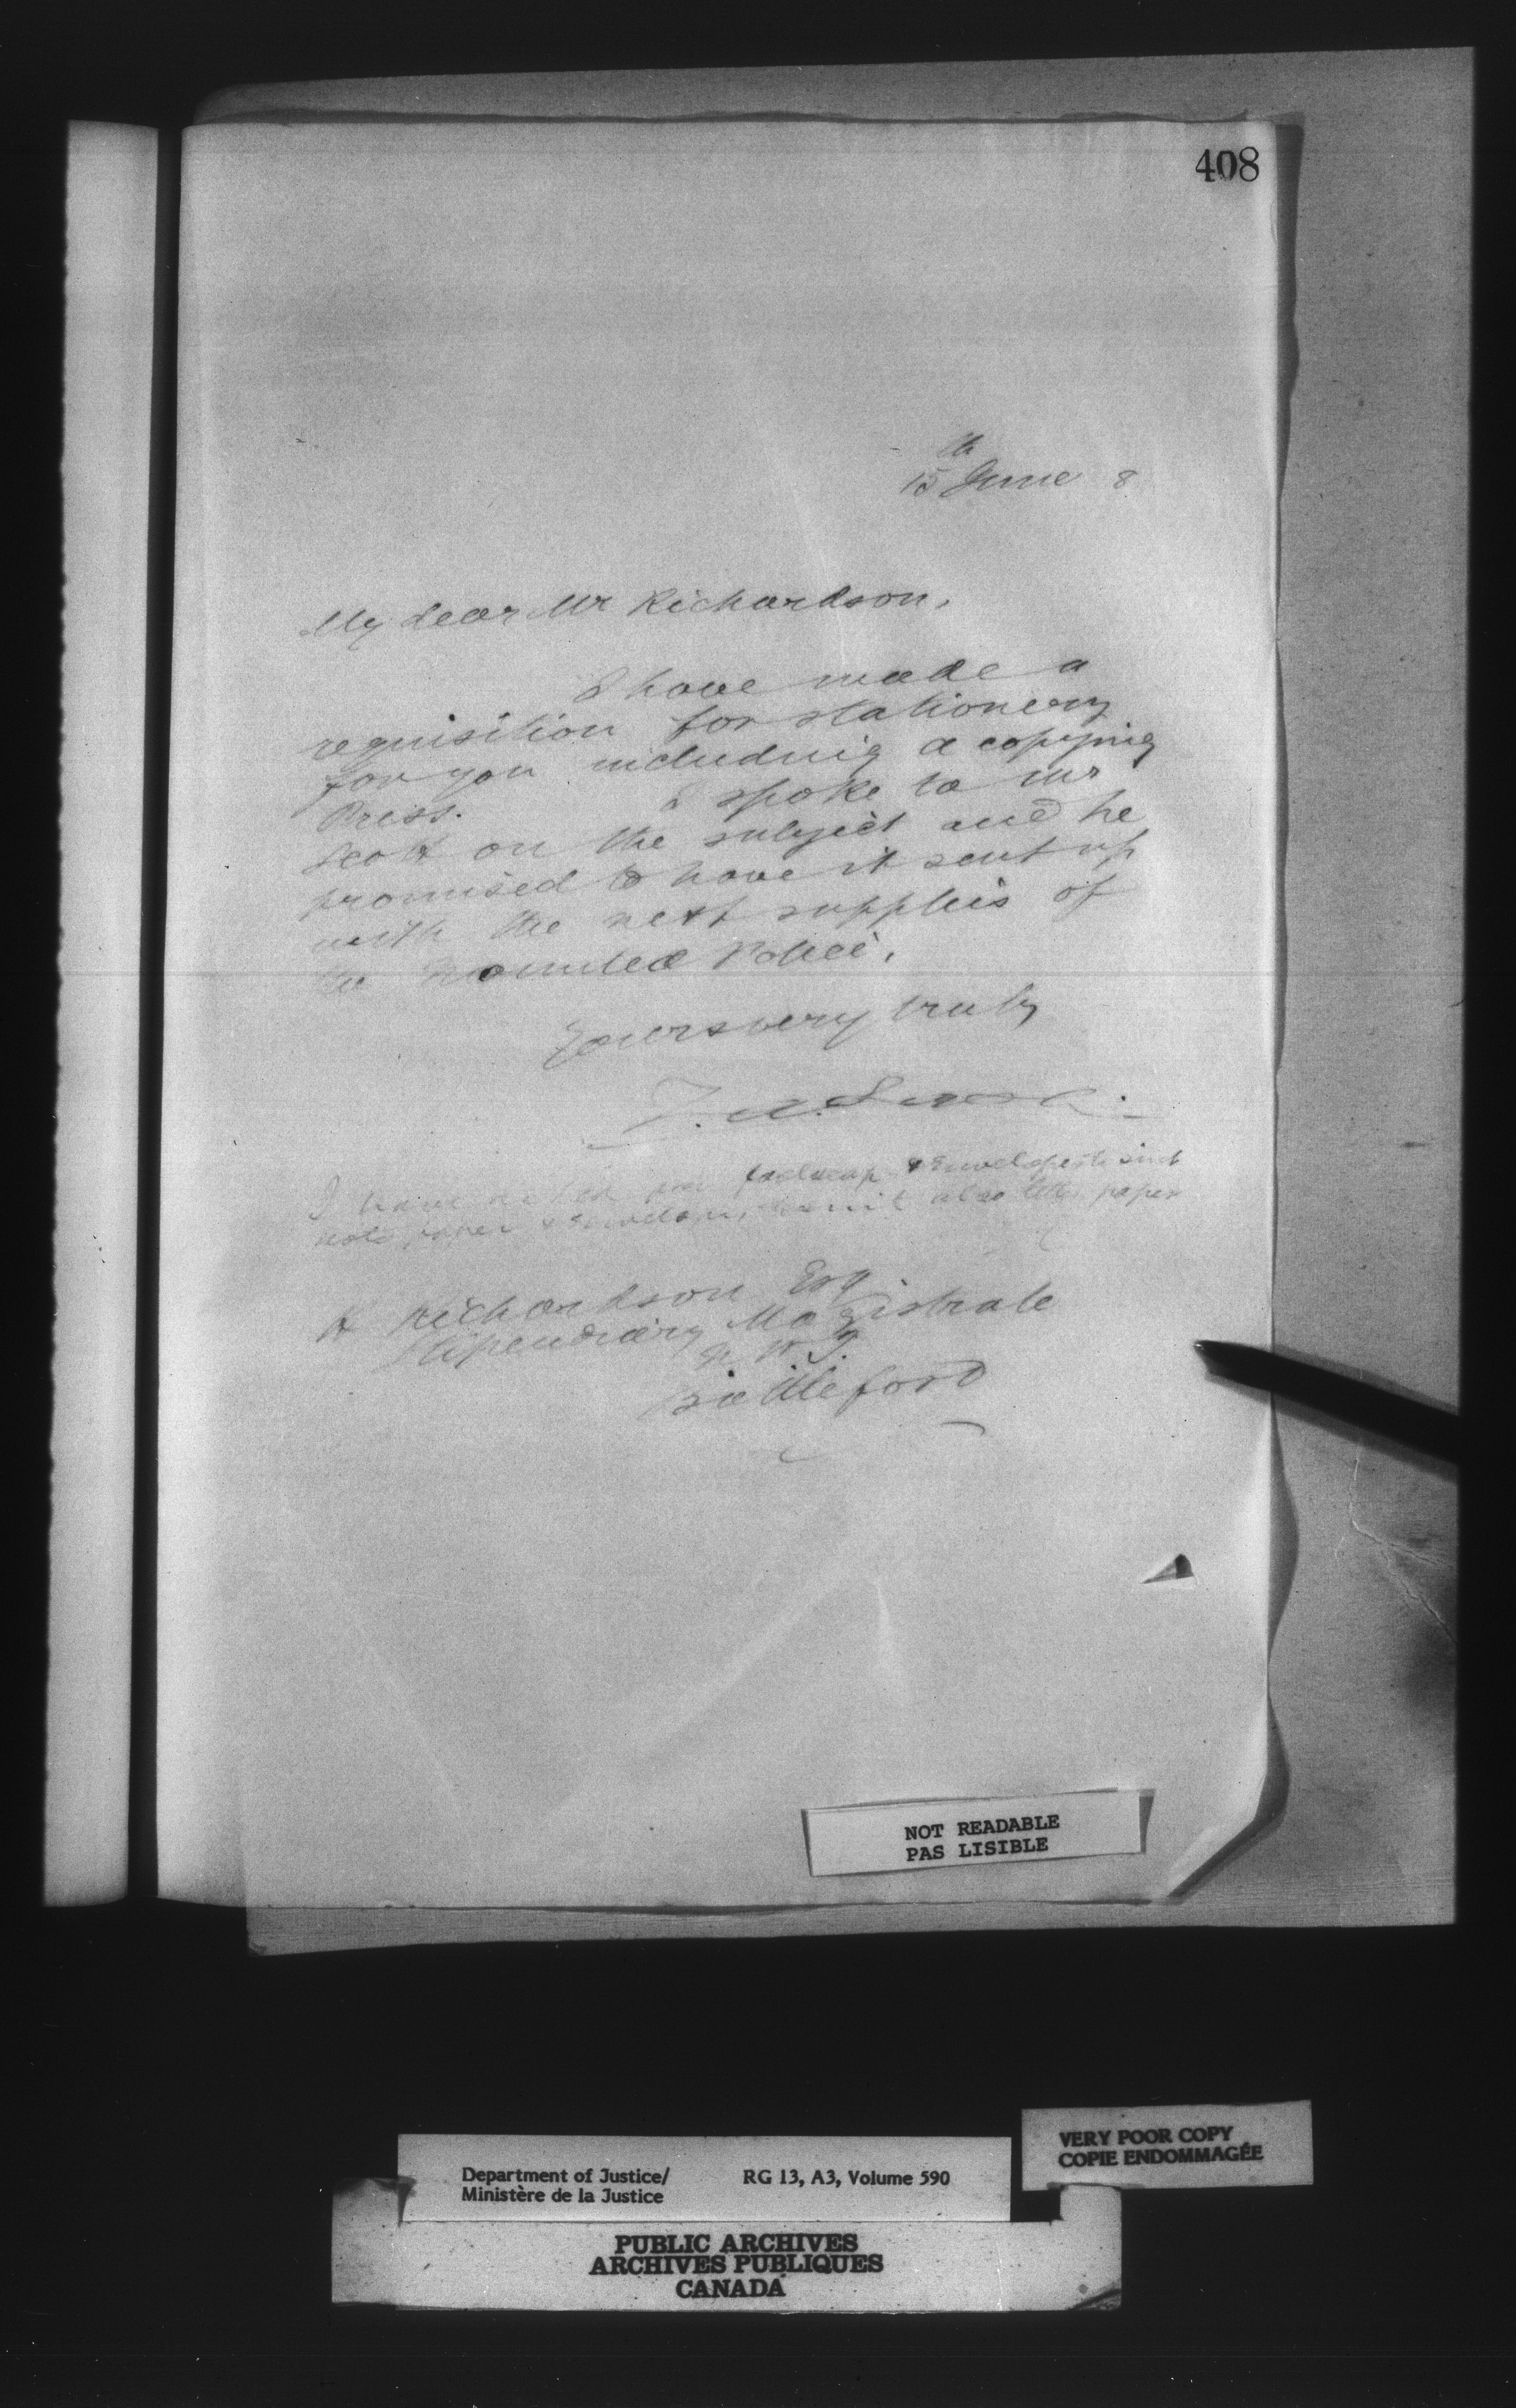 408
15th June 8
My dear Mr Richardson,
I have made a
requisition for stationery
for you including a copying
Press. I spoke to Mr
Scott on the subject and he
promised to have it sent up
with the next supplies of
the Mounted Police.
Yours very truly
I have asked for foolscap & Envelopes to suit
note paper & Envelopes to suit also letter paper
H Richardson Esq
Stipendiary Magistrate
N W T
Battleford
NOT READABLE
PAS LISIBLE
VERY POOR COPY
COPIE ENDOMMAGÉE
Department of Justice/ RG 13, A3, Volume 590
Ministère de la Justice
PUBLIC ARCHIVES
ARCHIVES PUBLIQUES
CANADA